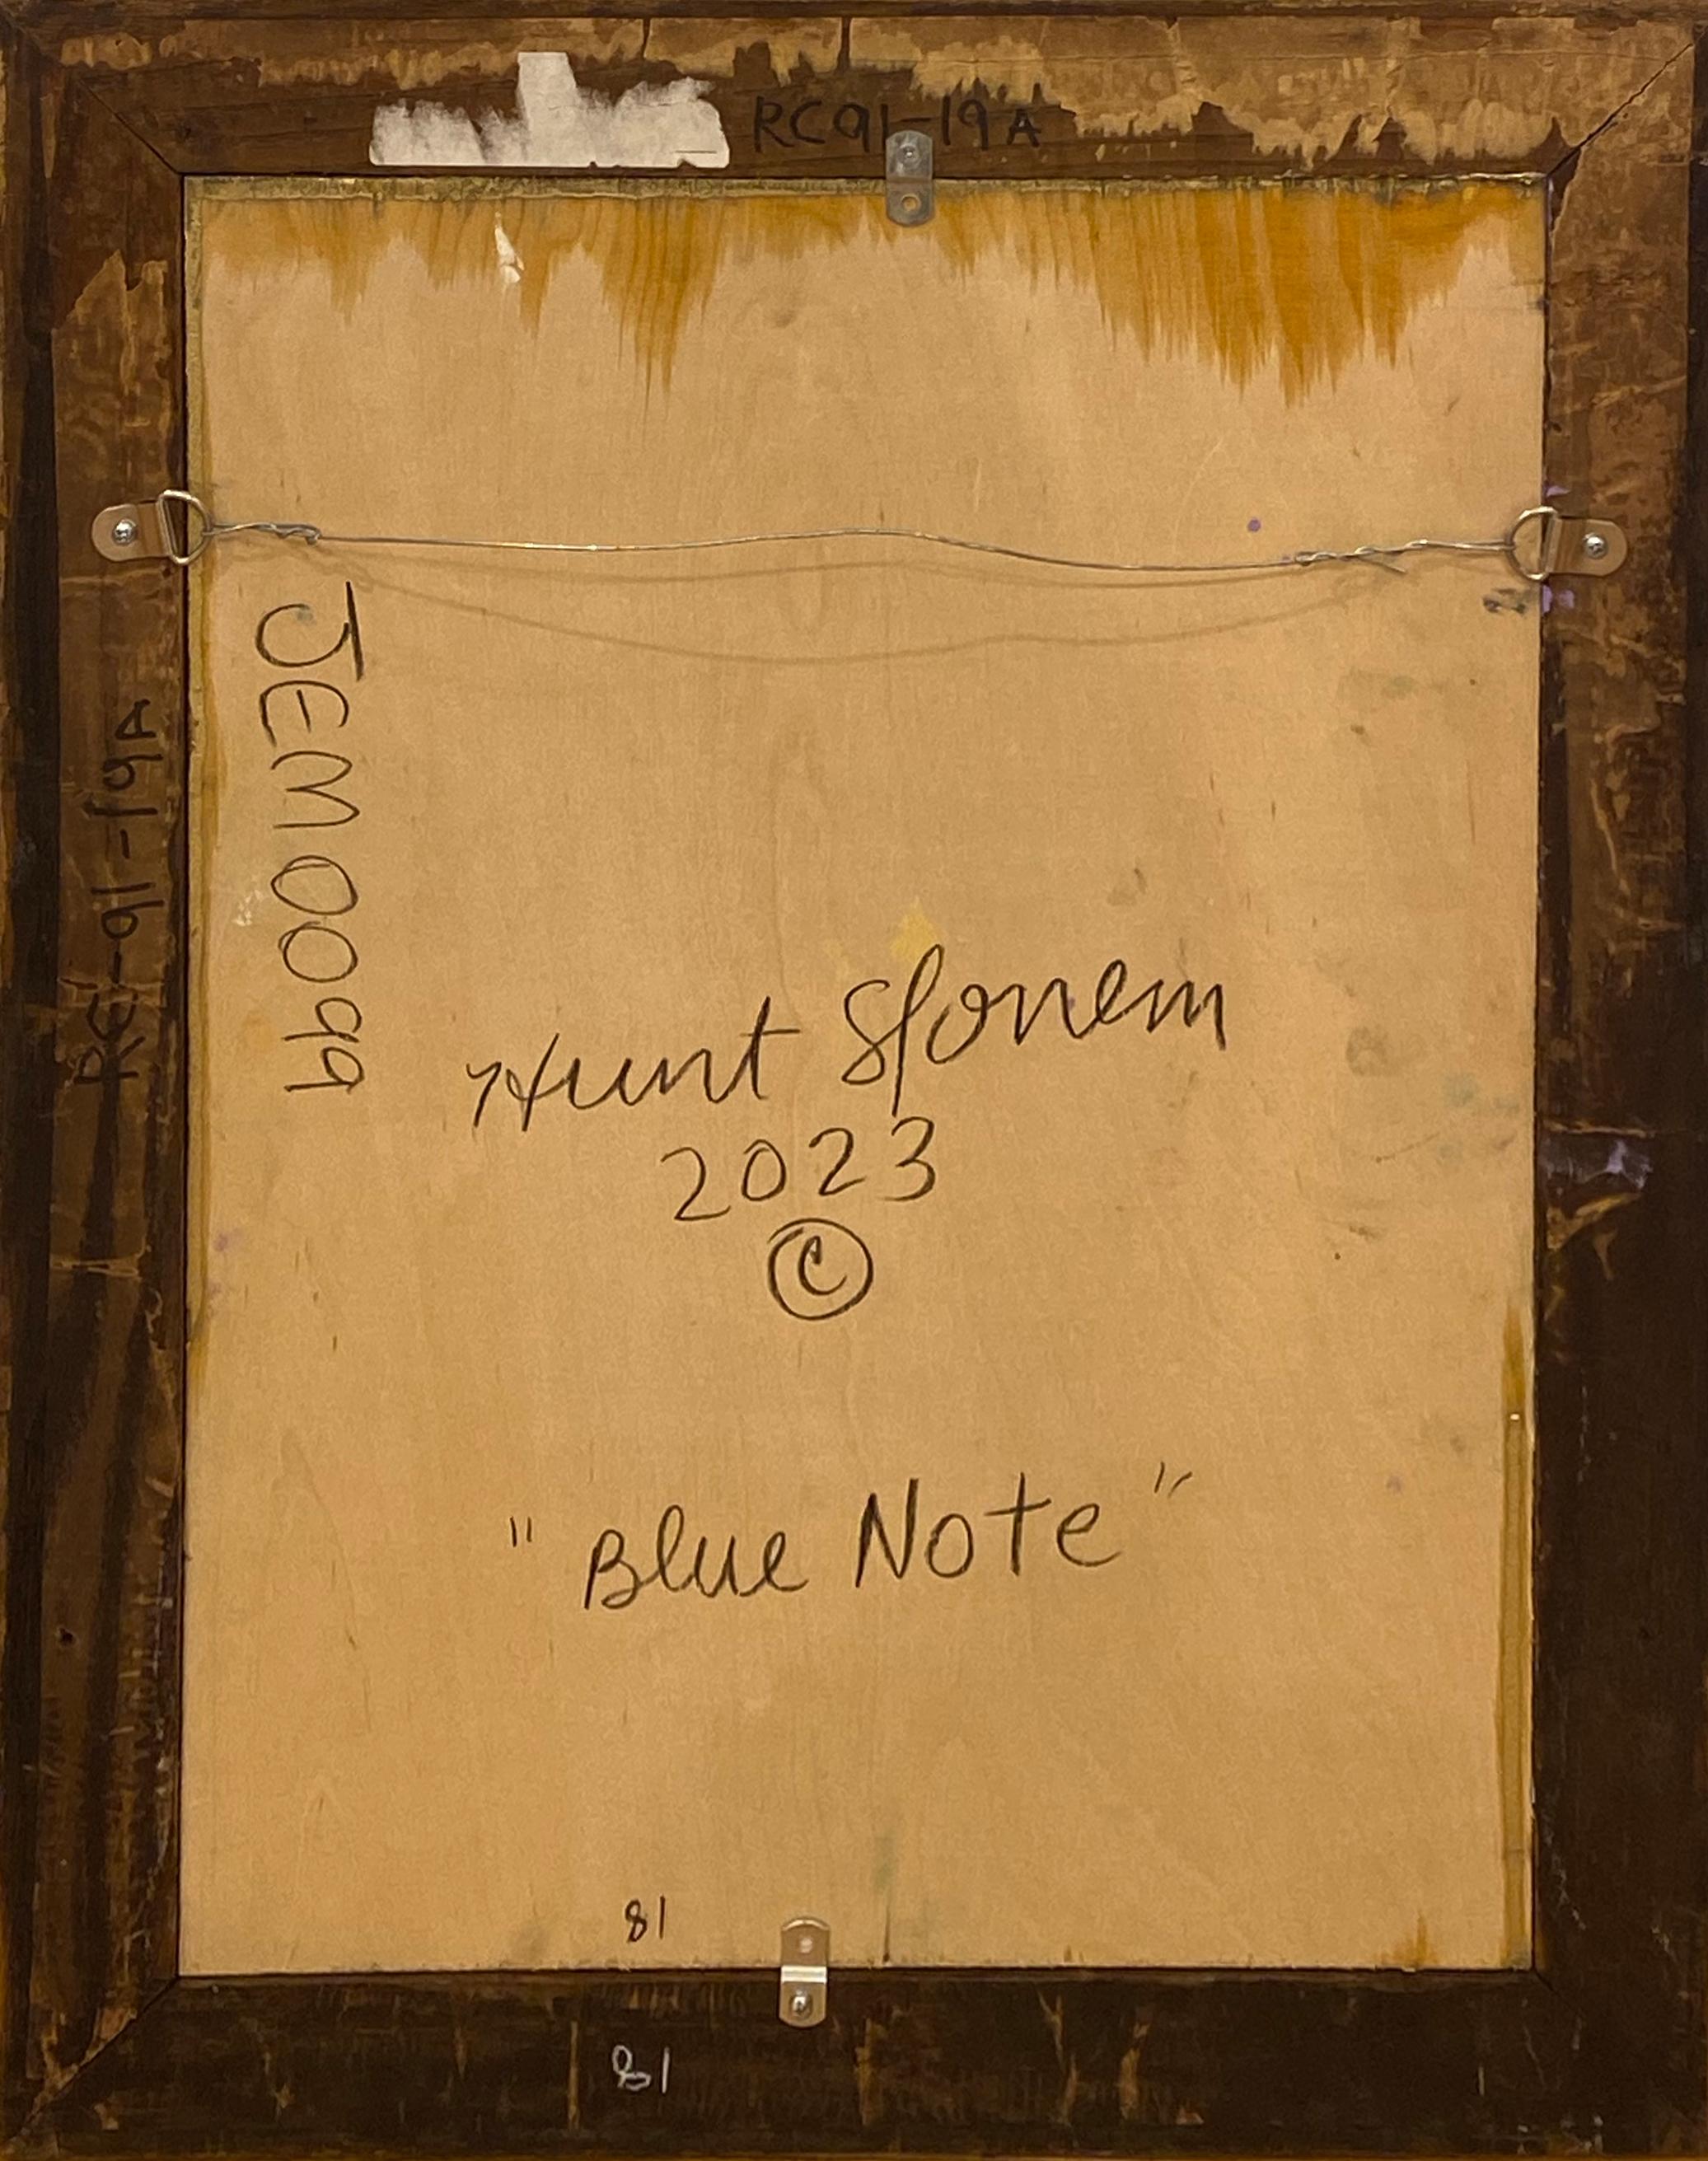 RC91-19A
RC-91-19A
JEM0099
Hunt Slonem
2023
©
"Blue Note"
81
81